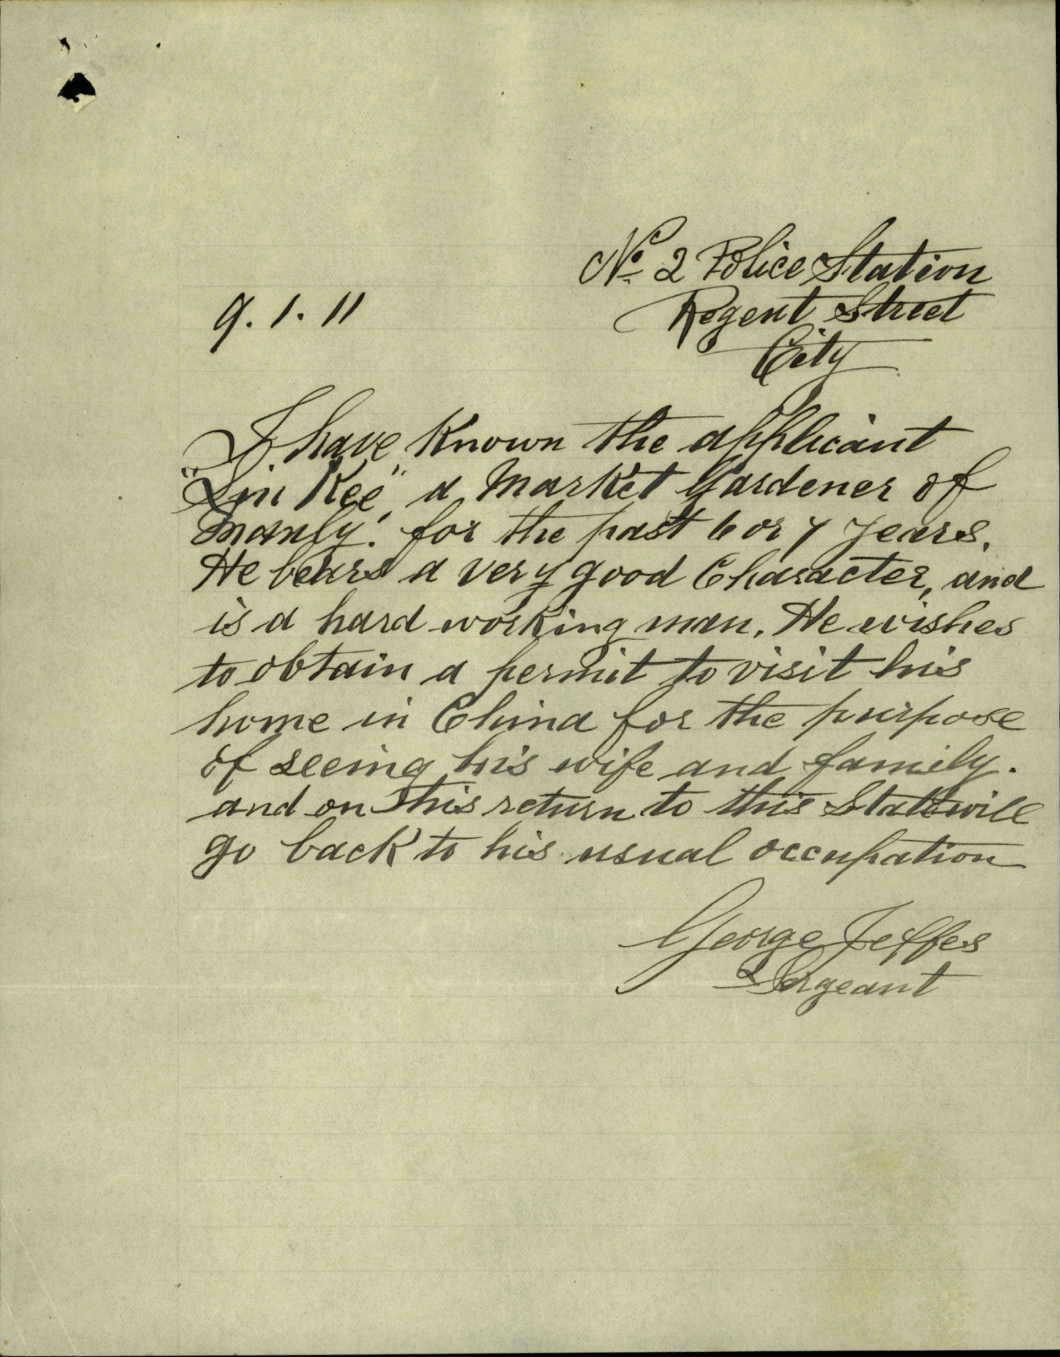 No. 2 Police Station
Regent Street
City
9. 1. 11
I have known the applicant
"Lin Kee", a Market Gardener of
Manly. for the past 6 or 7 years.
He bears a very good Character, and
is a hard working man. He wishes
to obtain a permit to visit his
home in China for the purpose
of seeing his wife and family.
and on his return to this State will
go back to his usual occupation
George Jeffes
Sergeant